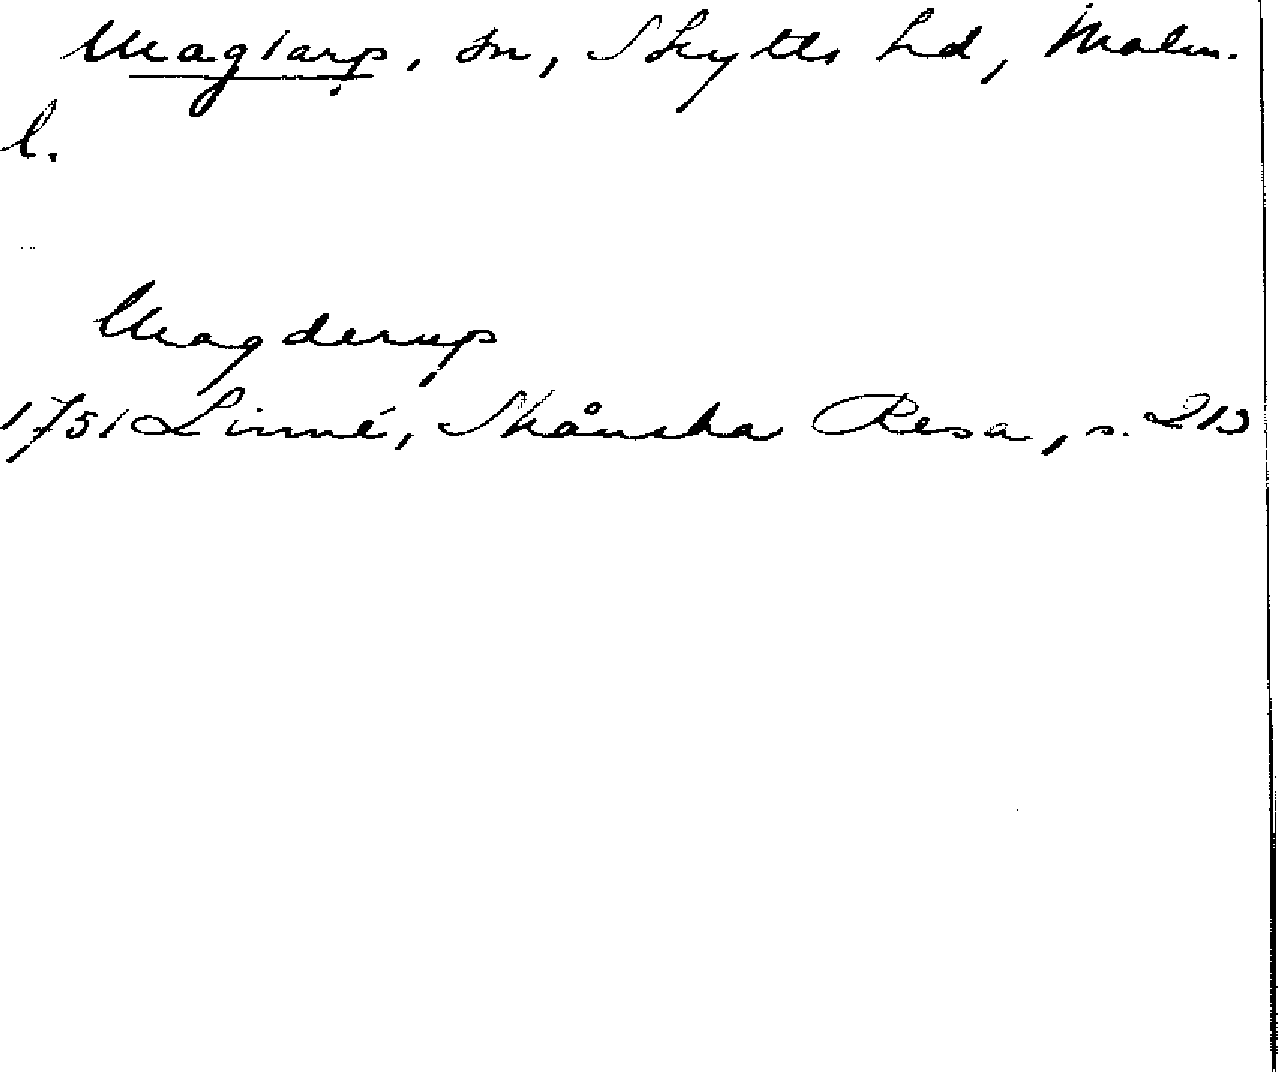 Maglarp, sn, Skytts hd, Malm.
l.
Magderup
1751 Linné, Skånska Resa, s. 213